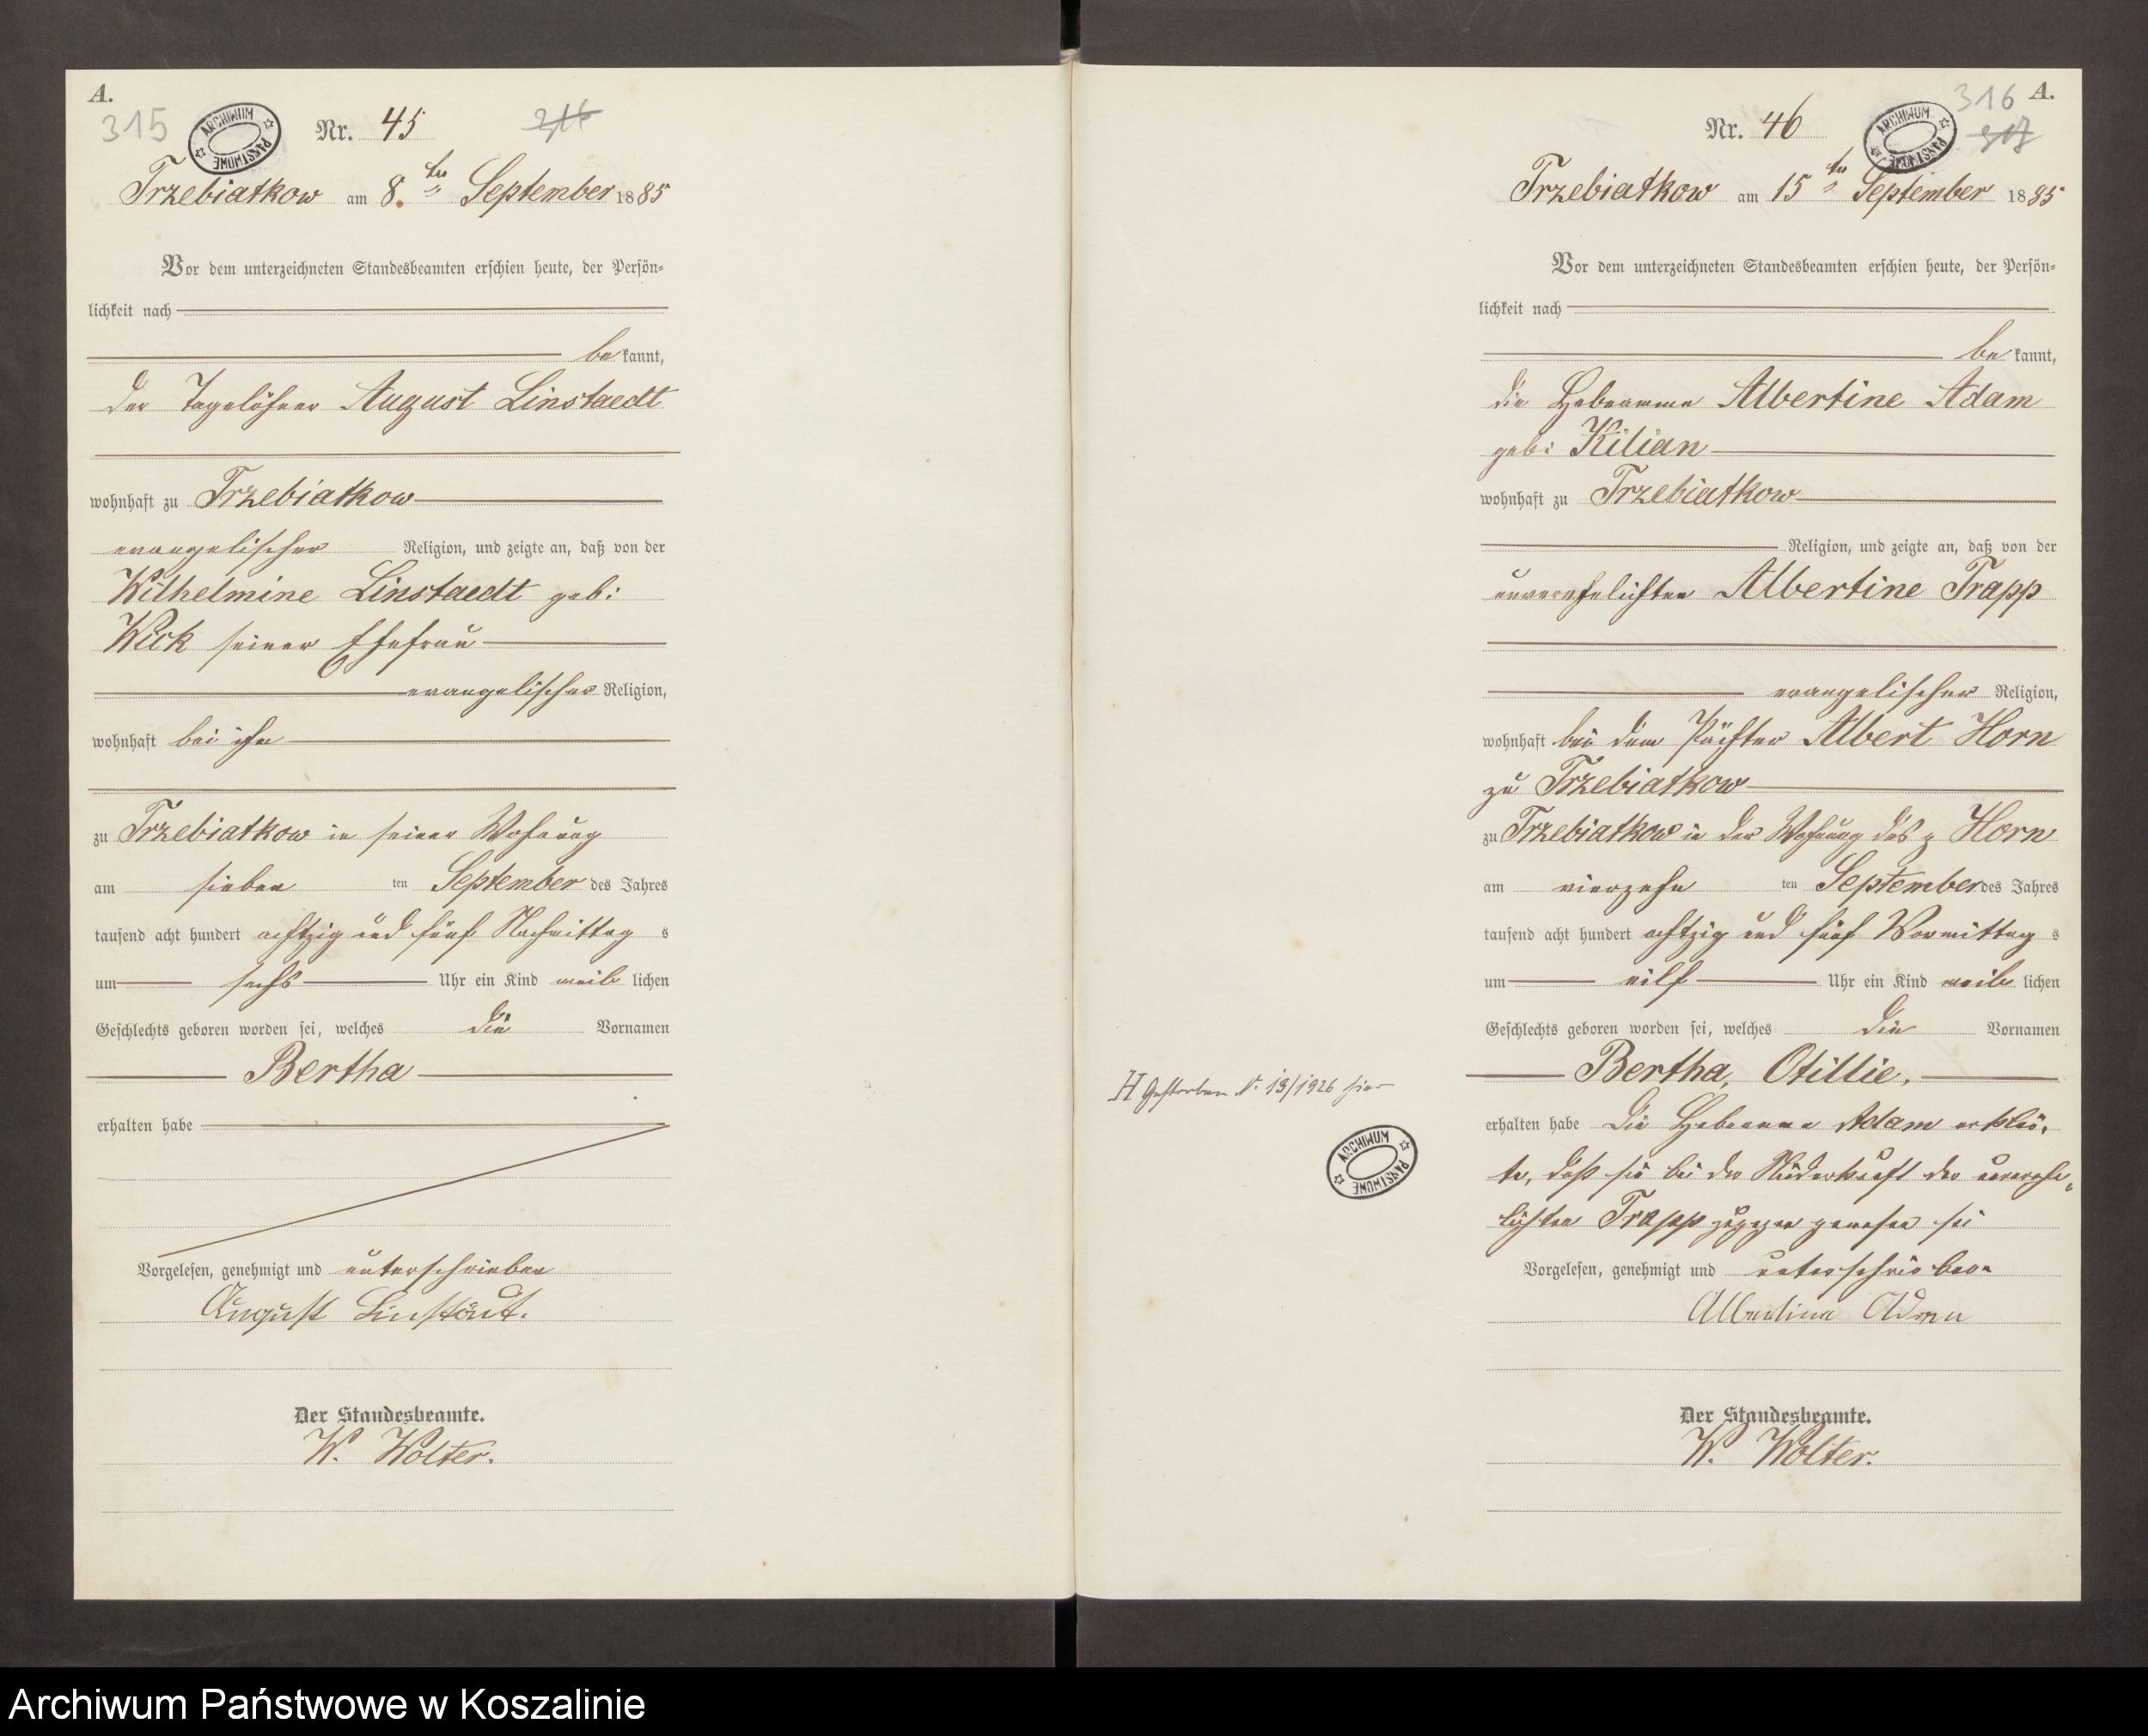 A.
315
ARCHIWUM PAŃSTWOWE
Nr. 45
316
Trzebiatkow am 8. ten September 1885
Vor dem unterzeichneten Standesbeamten erschien heute, der Persön-
lichkeit nach
be kannt,
der Tagelöhner August Linstaedt
wohnhaft zu Trzebiatkow
evangelischer Religion, und zeigte an, daß von der
Wilhelmine Linstaedt geb:
Wick seiner Ehefrau
evangelischer Religion,
wohnhaft bei ihm
zu Trzebiatkow in seiner Wohnung
am sieben ten September des Jahres
tausend acht hundert achtzig und fünf Nachmittag s
um sechs Uhr ein Kind weib lichen
Geschlechts geboren worden sei, welches die Vornamen
Bertha
erhalten habe
Vorgelesen, genehmigt und unterschrieben
August Linstädt.
Der Standesbeamte.
W. Wolter.
316 A.
Nr. 46
ARCHIWUM PAŃSTWOWE
317
Trzebiatkow am 15 ten September 1885
Vor dem unterzeichneten Standesbeamten erschien heute, der Persön-
lichkeit nach
be kannt,
die Hebamme Albertine Adam
geb: Kilian
wohnhaft zu Trzebiatkow
Religion, und zeigte an, daß von der
unverehelichten Albertine Trapp
evangelischer Religion,
wohnhaft bei dem Pächter Albert Horn
zu Trzebiatkow
zu Trzebiatkow in der Wohnung des p Horn
am vierzehn ten September des Jahres
tausend acht hundert achtzig und fünf Vormittag s
um eilf Uhr ein Kind weib lichen
Geschlechts geboren worden sei, welches die Vornamen
Bertha, Otillie,
H Gestorben Nr. 13/1926 hier
erhalten habe Die Hebamme Adam erklär-
te, daß sie bei der Niederkunft der unverehe-
lichten Trapp zugegen gewesen sei
ARCHIWUM PAŃSTWOWE
Vorgelesen, genehmigt und unterschrieben
Albertine Adam
Der Standesbeamte.
W. Wolter.
Archiwum Państwowe w Koszalinie